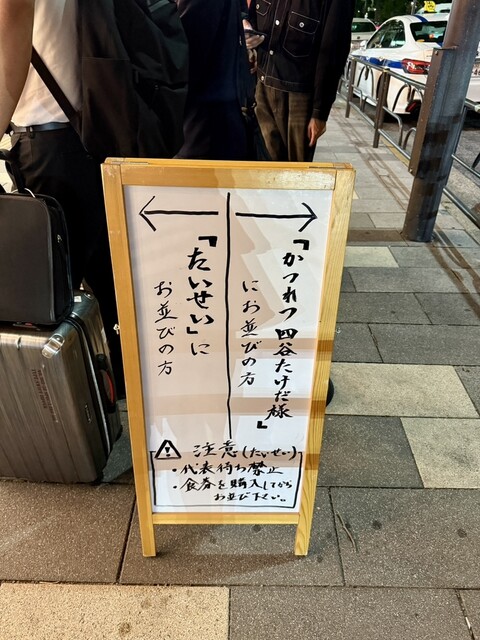 「かつれつ四谷たけだ様」
にお並びの方
「たいせい」に
お並びの方
注意(たいせい)
・代表待ち禁止
・食券を購入してから
お並び下さい。